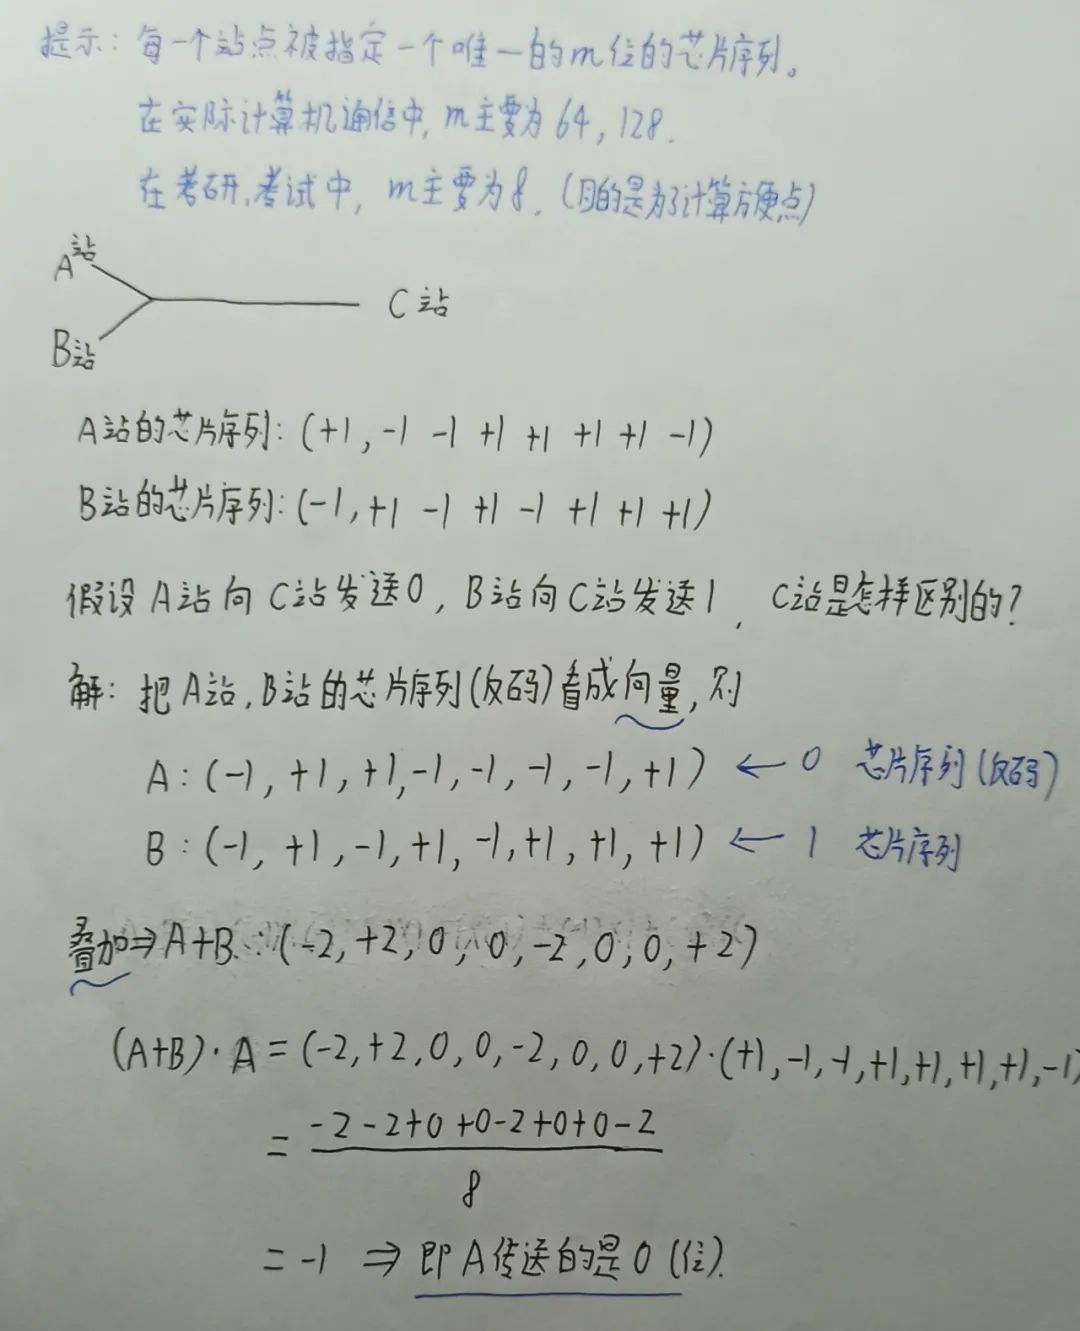 提示：每一个站点被指定一个唯一的m位的芯片序列。
在实际计算机通信中，m主要为64，128.
在考研,考试中，m主要为8.（目的是为了计算方便点）
A站
C站
B站
A站的芯片序列：(+1,-1 -1 +1 +1 +1 +1 -1)
B站的芯片序列：(-1,+1 -1 +1 -1 +1 +1 +1)
假设A站向C站发送0，B站向C站发送1，C站是怎样区别的?
解：把A站,B站的芯片序列(反码)看成向量,则
A：(-1, +1, +1,-1, -1, -1, -1, +1) ← 0 芯片序列(反码)
B：(-1, +1, -1, +1, -1, +1, +1, +1) ← 1 芯片序列
叠加⇒A+B：(-2, +2, 0, 0, -2, 0, 0, +2)
(A+B)·A = (-2,+2,0,0,-2,0,0,+2)·(+1,-1,-1,+1,+1,+1,+1,-1)
= -2-2+0+0-2+0+0-2
8
= -1 ⇒ 即A传送的是0(位).